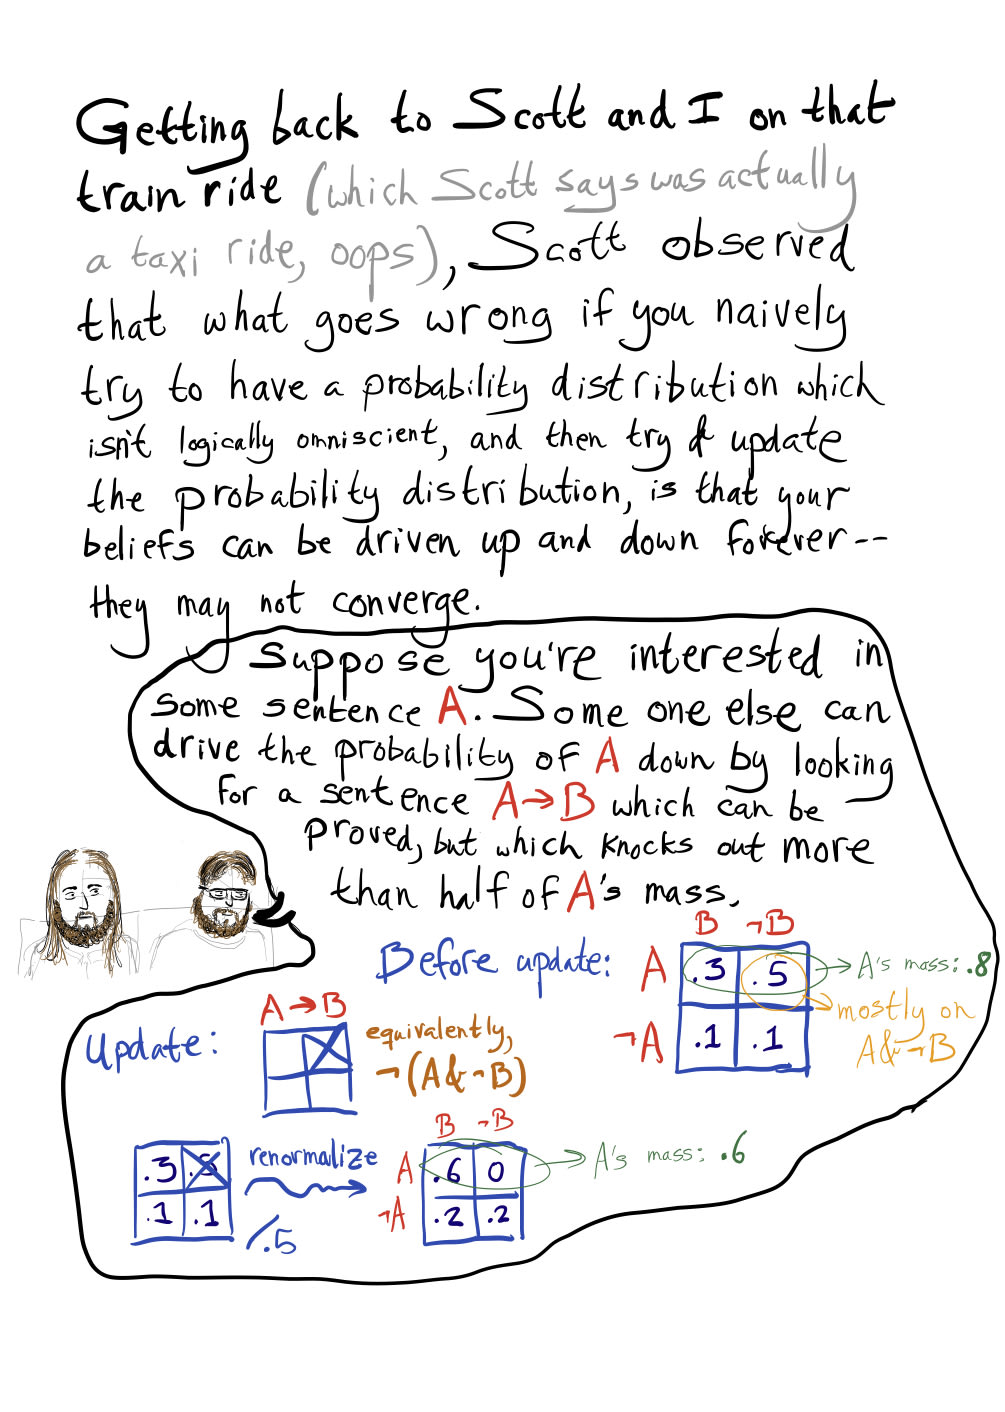 Getting back to Scott and I on that
train ride (which Scott says was actually
a taxi ride, oops), Scott observed
that what goes wrong if you naively
try to have a probability distribution which
isn't logically omniscient, and then try & update
the probability distribution, is that your
beliefs can be driven up and down forever--
they may not converge.
Suppose you're interested in
some sentence A. Some one else can
drive the probability of A down by looking
for a sentence A→B which can be
proved, but which knocks out more
than half of A's mass.
B ¬B
Before update: A .3 .5 → A's mass: .8
→ mostly on
A&¬B
¬A .1 .1
A→B
Update: equivalently,
¬(A&¬B)
B ¬B
.3 .5 renormailize A .6 0 → A's mass: .6
.1 .1 /.5 ¬A .2 .2